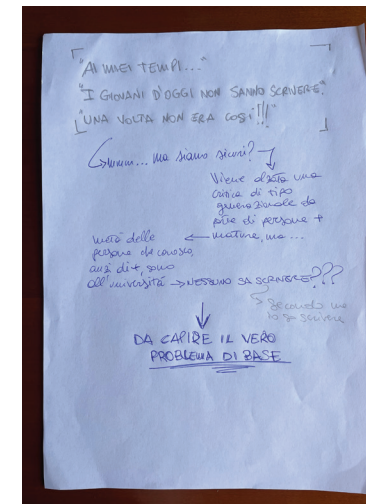 "AI MIEI TEMPI..."
"I GIOVANI D'OGGI NON SANNO SCRIVERE"
"UNA VOLTA NON ERA COSÌ!!!"
mmm... ma siamo sicuri?
Viene alzata una
critica di tipo
generazionale da
parte di persone +
mature, ma...
metà delle
persone che conosco,
anzi di +, sono
all'università → NESSUNO SA SCRIVERE???
Secondo me
lo sa scrivere
DA CAPIRE IL VERO
PROBLEMA DI BASE